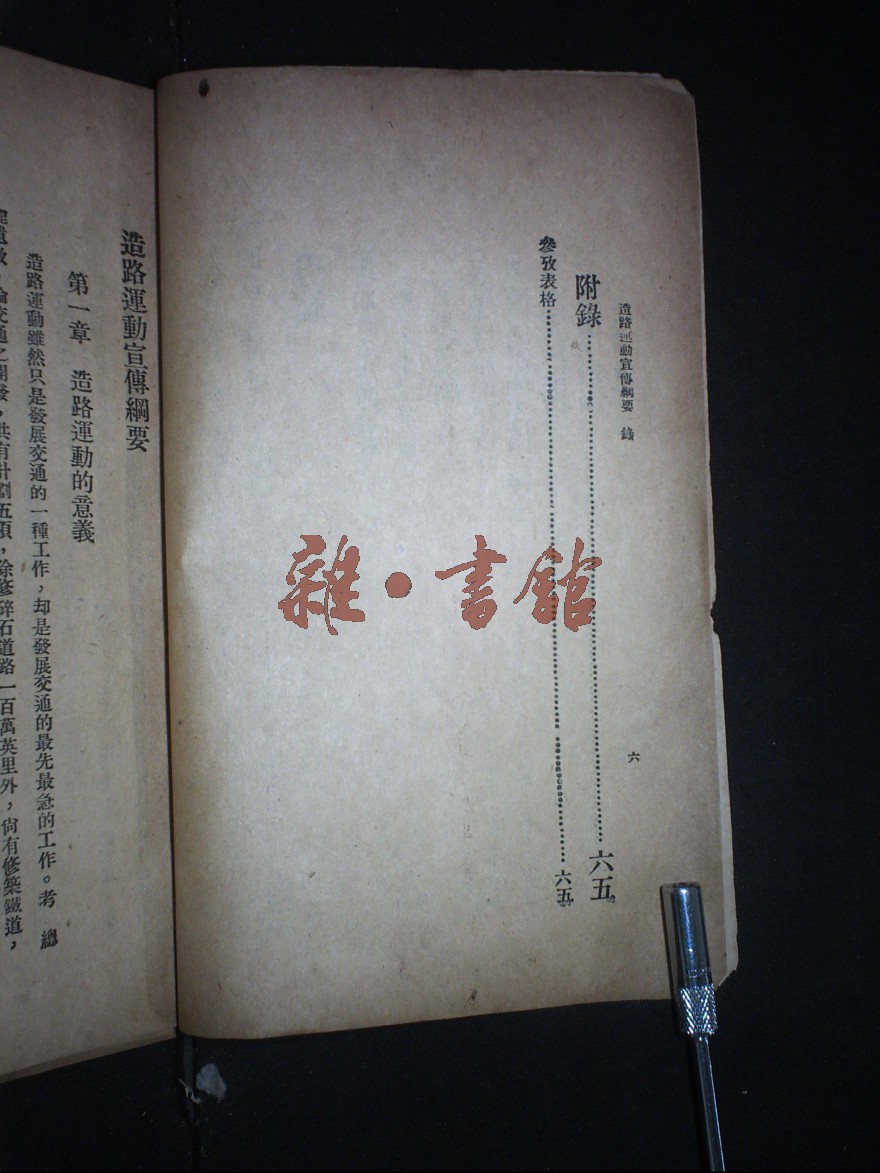 造路運動宣傳綱要 錄
六
附錄……六五
參攷表格……六五
造路運動宣傳綱要
第一章 造路運動的意義
造路運動雖然只是發展交通的一種工作，却是發展交通的最先最急的工作。考 總
理遺敎，論交通之開發，共有計劃五項，除修碎石道路一百萬英里外，尙有修築鐵道，
雜·書館